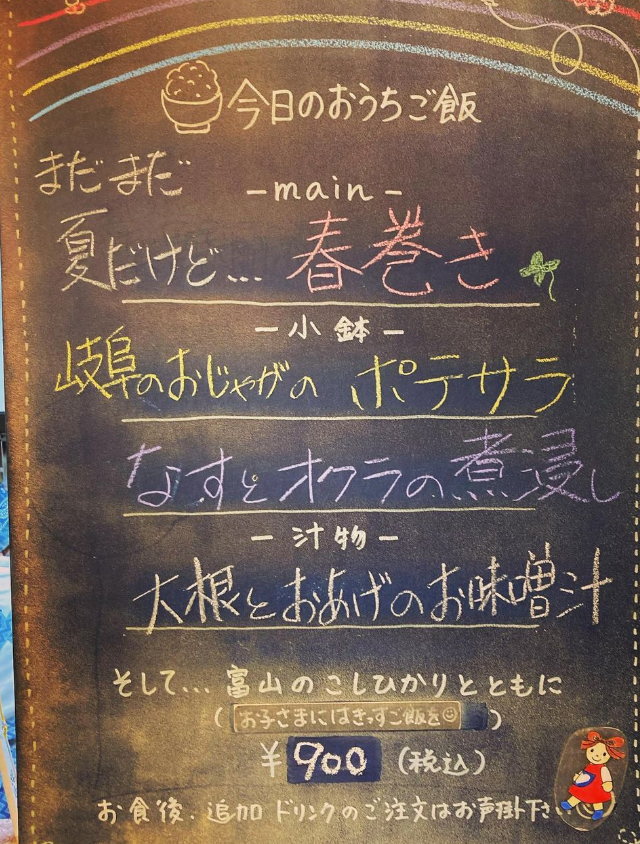 今日のおうちご飯
まだまだ
－main－
夏だけど… 春巻き
－小鉢－
岐阜のおじゃがの ポテサラ
なすとオクラの煮浸し
－汁物－
大根とおあげのお味噌汁
そして… 富山のこしひかりとともに
(お子さまにはきっずご飯を☺)
¥900 (税込)
お食後、追加ドリンクのご注文はお声掛下さい